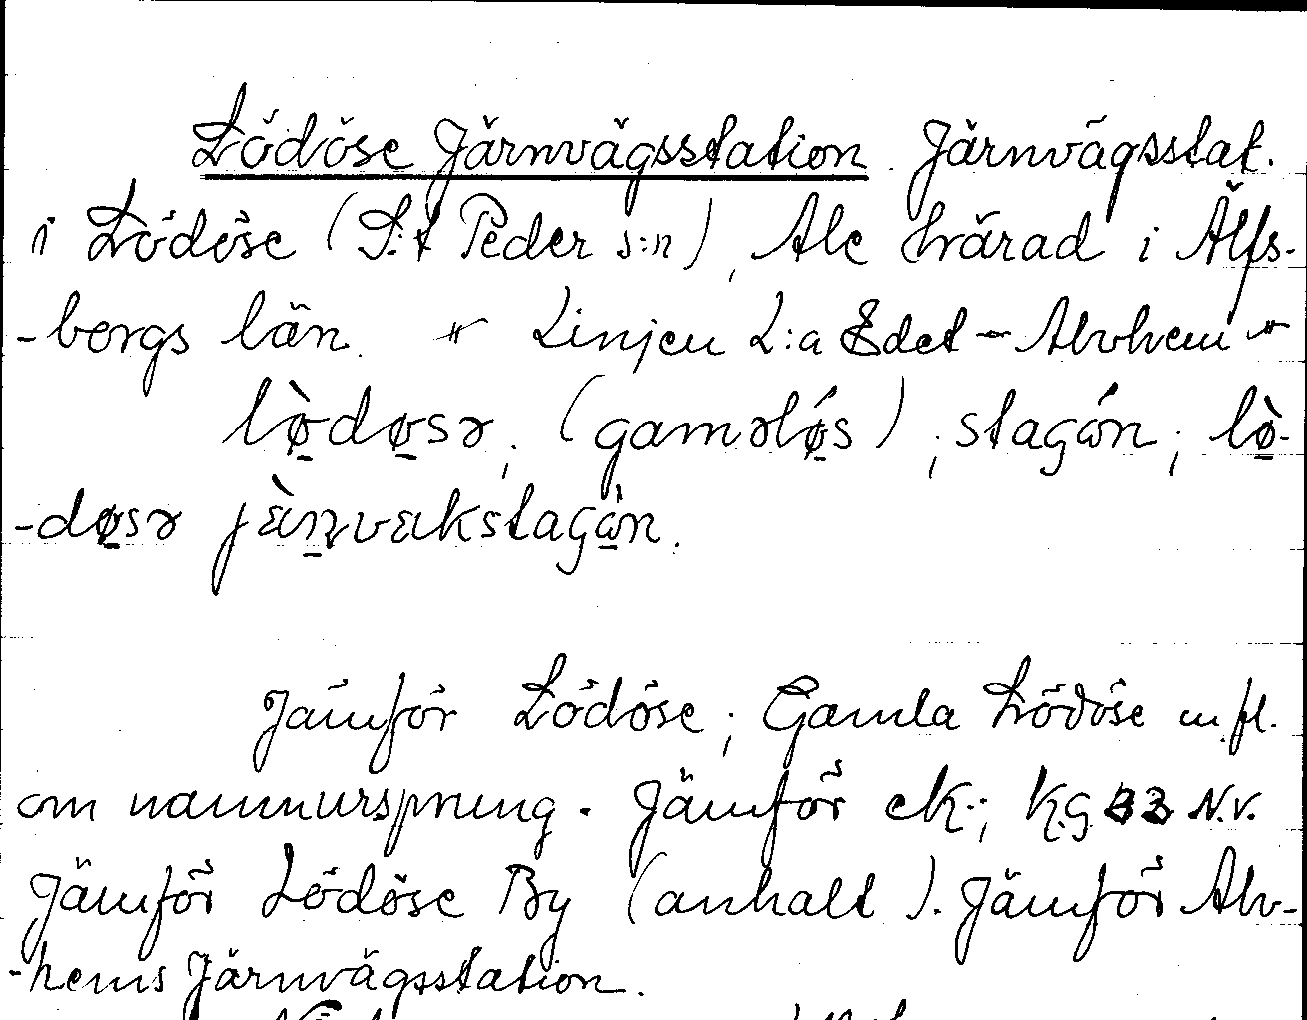 Lödöse Järnvägsstation Järnvägsstat.
i Lödöse (S:t Peder s:n), Ale härad i Älfs-
-borgs län. " Linjen L:a Edet - Alvhem "
lø̀døsə, (gaməlǿs), stagón, lø̀-
-døsə jæ̀ɳvækstagòn.
Jämför Lödöse; Gamla Lödöse m.fl.
om namnursprung. Jämför ek.; K.G 33 N.V.
Jämför Lödöse By (anhalt). Jämför Alv-
-hems Järnvägsstation.